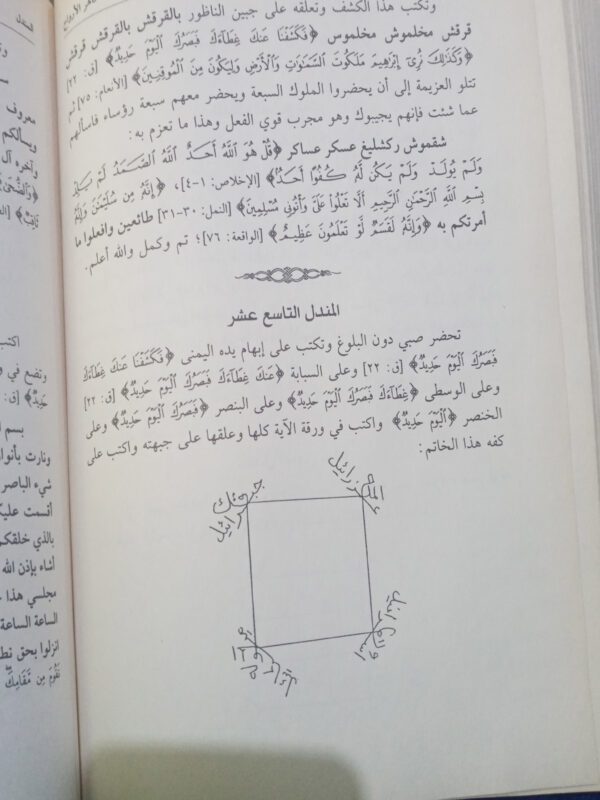 وتكتب هذا الكشف وتعلقه على جبين الناظور بالقرقش بالقرقش قرقش
قرقش مخلموش مخلموس ﴿فَكَشَفْنَا عَنكَ غِطَاءَكَ فَبَصَرُكَ الْيَوْمَ حَدِيدٌ﴾ [ق: ٢٢]
﴿وَكَذَلِكَ نُرِي إِبْرَاهِيمَ مَلَكُوتَ السَّمَاوَاتِ وَالْأَرْضِ وَلِيَكُونَ مِنَ الْمُوقِنِينَ﴾ [الأنعام: ٧٥] ثم
تتلو العزيمة إلى أن يحضروا الملوك السبعة ويحضر معهم سبعة رؤساء فاسألهم
عما شئت فإنهم يجيبوك وهو مجرب قوي الفعل وهذا ما تعزم به:
شقموش ركشليغ عسكر عساكر ﴿قُلْ هُوَ اللَّهُ أَحَدٌ اللَّهُ الصَّمَدُ لَمْ يَلِدْ
وَلَمْ يُولَدْ وَلَمْ يَكُن لَّهُ كُفُوًا أَحَدٌ﴾ [الإخلاص: ١-٤]، ﴿إِنَّهُ مِن سُلَيْمَانَ وَإِنَّهُ
بِسْمِ اللَّهِ الرَّحْمَٰنِ الرَّحِيمِ أَلَّا تَعْلُوا عَلَيَّ وَأْتُونِي مُسْلِمِينَ﴾ [النمل: ٣٠-٣١] طائعين وافعلوا ما
أمرتكم به ﴿وَإِنَّهُ لَقَسَمٌ لَّوْ تَعْلَمُونَ عَظِيمٌ﴾ [الواقعة: ٧٦]؛ تم وكمل والله أعلم.
المندل التاسع عشر
تحضر صبي دون البلوغ وتكتب على إبهام يده اليمنى ﴿فَكَشَفْنَا عَنكَ غِطَاءَكَ
فَبَصَرُكَ الْيَوْمَ حَدِيدٌ﴾ [ق: ٢٢] وعلى السبابة ﴿عَنكَ غِطَاءَكَ فَبَصَرُكَ الْيَوْمَ حَدِيدٌ﴾ [ق: ٢٢]
وعلى الوسطى ﴿غِطَاءَكَ فَبَصَرُكَ الْيَوْمَ حَدِيدٌ﴾ وعلى البنصر ﴿فَبَصَرُكَ الْيَوْمَ حَدِيدٌ﴾ وعلى
الخنصر ﴿الْيَوْمَ حَدِيدٌ﴾ واكتب في ورقة الآية كلها وعلقها على جبهته واكتب على
كفه هذا الخاتم:
المندل
معروف
ويسألكم
وآخره آل
اكتب
وتضع في و
حَدِيدٌ﴾ [ق:
بسم ا
ونارت بأنوا
شيء الباصر
أقسمت عليك
بالذي خلقكم
أشاء بإذن الله
مجلسي هذا
الساعة الساعة
انزلوا بحق
تَقُومَ مِن مَّقَامِكَ